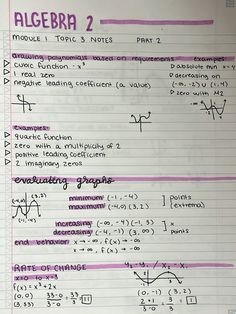 ALGEBRA 2
MODULE 1 TOPIC 3 NOTES PART 2
drawing polynomials based on requirements
examples:
▷ cubic function · x³
▷ 1 real zero
▷ negative leading coefficient (a value)
▷ absolute min x = -4
▷ decreasing on
(-∞, -2) ∪ (1, 4)
▷ zero with M2
examples:
▷ quartic function
▷ zero with a multiplicity of 2
▷ positive leading coefficient
▷ 2 imaginary zeros
evaluating graphs
(-4, 0) (3, 2)
minimum: (-1, -4)
maximum: (-4, 0) (3, 2)
] points (extrema)
increasing: (-∞, -4) (-1, 3)
decreasing: (-4, -1) (3, ∞)
] x points
end behavior: x → -∞, f(x) → -∞
x → ∞, f(x) → -∞
RATE OF CHANGE
y₂ - y₁ / x₂ - x₁
x=0 to x=3
f(x) = x³ + 2x
(0, 0) (3, 33)
33-0 / 3-0 = 33/3 = 11
(0, -1) (3, 2)
2+1 / 3-0 = 3/3 = 1